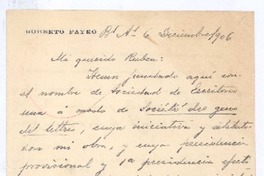 ROBERTO PAYRÓ Bs As 6 Diciembre/906
Mi querido Rubén:
Hemos fundado aquí con
el nombre de Sociedad de Escritores
una á modo de Société des gens
des lettres, cuya iniciativa y estatutos
son mi obra, y cuya presidencia
provisional y 1ª presidencia efect-